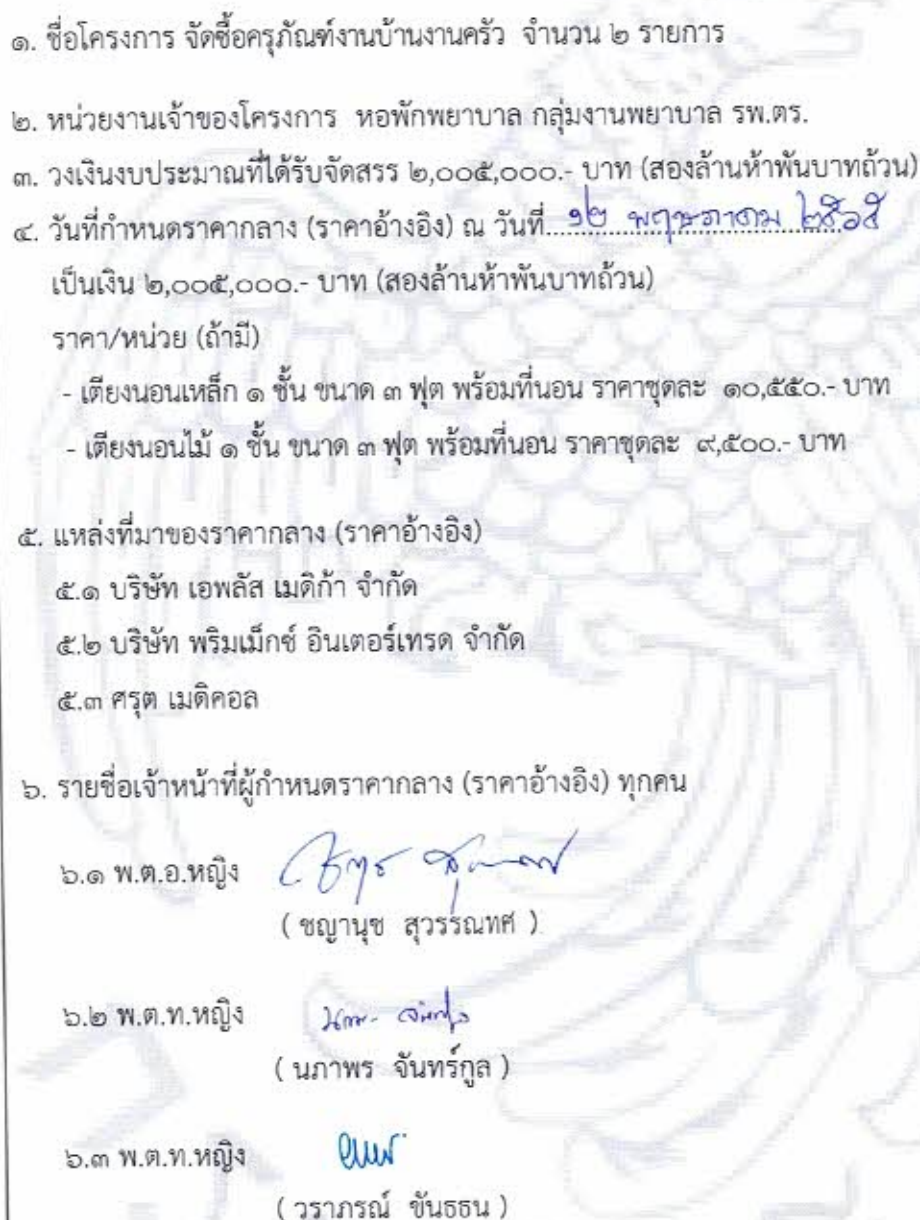 ๑. ชื่อโครงการ จัดซื้อครุภัณฑ์งานบ้านงานครัว จำนวน ๒ รายการ
๒. หน่วยงานเจ้าของโครงการ หอพักพยาบาล กลุ่มงานพยาบาล รพ.ตร.
๓. วงเงินงบประมาณที่ได้รับจัดสรร ๒,๐๐๕,๐๐๐.- บาท (สองล้านห้าพันบาทถ้วน)
๔. วันที่กำหนดราคากลาง (ราคาอ้างอิง) ณ วันที่ ๑๒ พฤษภาคม ๒๕๖๕
เป็นเงิน ๒,๐๐๕,๐๐๐.- บาท (สองล้านห้าพันบาทถ้วน)
ราคา/หน่วย (ถ้ามี)
- เตียงนอนเหล็ก ๑ ชั้น ขนาด ๓ ฟุต พร้อมที่นอน ราคาชุดละ ๑๐,๕๕๐.- บาท
- เตียงนอนไม้ ๑ ชั้น ขนาด ๓ ฟุต พร้อมที่นอน ราคาชุดละ ๙,๕๐๐.- บาท
๕. แหล่งที่มาของราคากลาง (ราคาอ้างอิง)
๕.๑ บริษัท เอพลัส เมดิก้า จำกัด
๕.๒ บริษัท พริมเม็กซ์ อินเตอร์เทรด จำกัด
๕.๓ ศรุต เมดิคอล
๖. รายชื่อเจ้าหน้าที่ผู้กำหนดราคากลาง (ราคาอ้างอิง) ทุกคน
๖.๑ พ.ต.อ.หญิง
( ชญานุช สุวรรณทศ )
๖.๒ พ.ต.ท.หญิง
( นภาพร จันทร์กูล )
๖.๓ พ.ต.ท.หญิง
( วราภรณ์ ขันธธน )